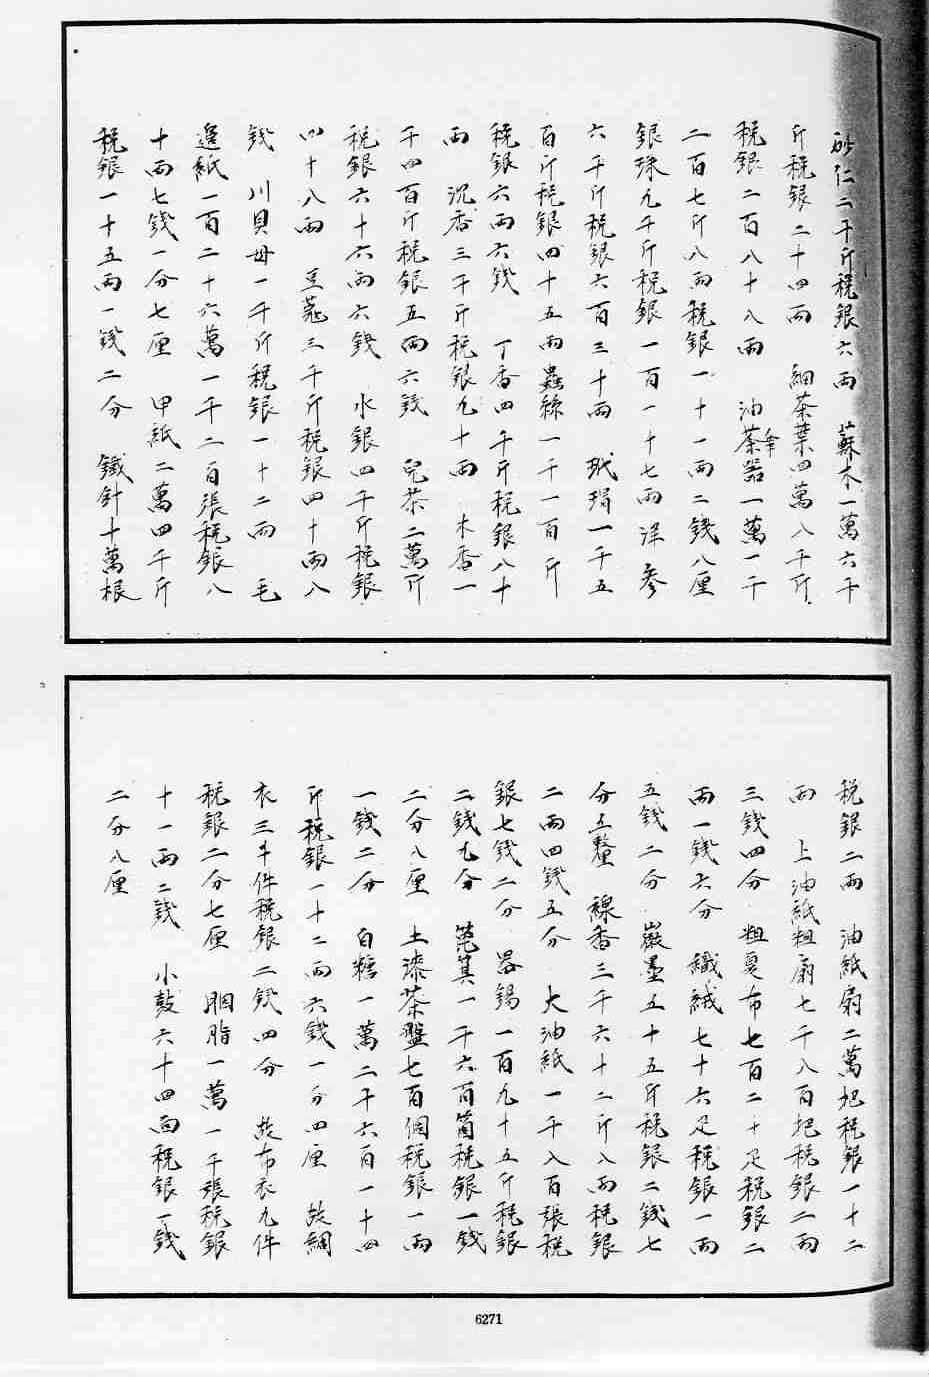 砂仁二千斤稅銀六兩　蘇木一萬六千
斤稅銀二十四兩　細茶葉四萬八千斤
稅銀二百八十八兩　油茶傘器一萬一千
二百七斤八兩稅銀一十一兩二錢八厘
銀珠九千斤稅銀一百一十七兩洋參
六千斤稅銀六百三十兩　玳瑁一千五
百斤稅銀四十五兩蟲絲一千一百斤
稅銀六兩六錢　丁香四千斤稅銀八十
兩　沉香三千斤稅銀九十兩　木香一
千四百斤稅銀五兩六錢　兒茶二萬斤
稅銀六十六兩六錢　水銀四千斤稅銀
四十八兩　豆蔻三千斤稅銀四十兩八
錢　川貝母一千斤稅銀一十二兩　毛
邊紙一百二十六萬一千二百張稅銀八
十兩七錢一分七厘　甲紙二萬四千斤
稅銀一十五兩一錢二分　鐵針十萬根
稅銀二兩　油紙扇二萬把稅銀一十二
兩　上油紙粗扇七千八百把稅銀二兩
三錢四分　粗夏布七百二十疋稅銀二
兩一錢六分　織絨七十六疋稅銀一兩
五錢二分　嚴墨五十五斤稅銀二錢七
分五釐　線香三千六十二斤八兩稅銀
二兩四錢五分　大油紙一千八百張稅
銀七錢二分　器錫一百九十五斤稅銀
二錢九分　篦箕一千六百箇稅銀一錢
二分八厘　土漆茶盤七百個稅銀一兩
一錢二分　白糖一萬二千六百一十四
斤稅銀一十二兩六錢一分四厘　故綢
衣三十件稅銀二錢四分　故布衣九件
稅銀二分七厘　胭脂一萬一千張稅銀
十一兩二錢　小鼓六十四面稅銀一錢
二分八厘
6271